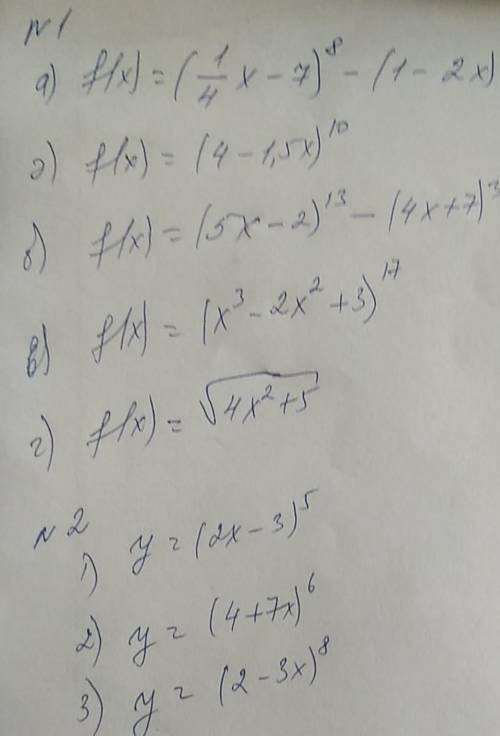 №1
а) f(x) = (1/4 x - 7)⁸ - (1 - 2x)
д) f(x) = (4 - 1,5x)¹⁰
б) f(x) = (5x - 2)¹³ - (4x + 7)³
в) f(x) = (x³ - 2x² + 3)¹⁷
г) f(x) = √(4x² + 5)
№2
1) y = (2x - 3)⁵
2) y = (4 + 7x)⁶
3) y = (2 - 3x)⁸